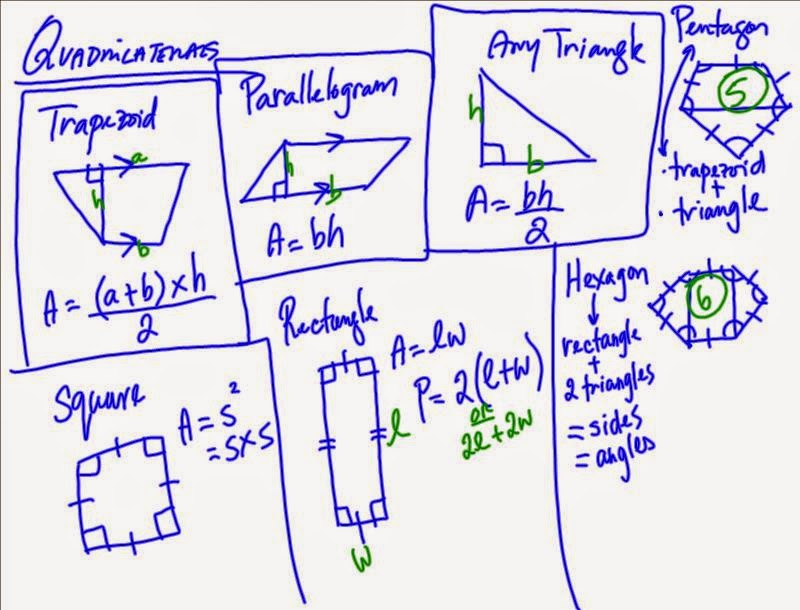 Quadrilaterals
Trapezoid
a
h
b
A = (a+b) × h
2
Parallelogram
h
b
A = bh
Any Triangle
h
b
A = bh
2
Pentagon
5
· trapezoid
+
· triangle
Square
A = s²
= s × s
Rectangle
A = lw
P = 2(l+w)
or
2l + 2w
l
w
Hexagon
6
rectangle
+
2 triangles
= sides
= angles